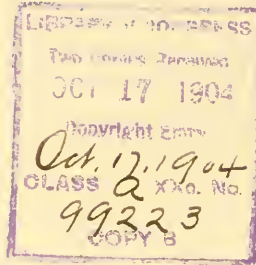 LIBRARY of CONGRESS
Two Copies Received
OCT 17 1904
Copyright Entry
Oct. 17, 1904
CLASS a XXc. No.
99223
COPY B